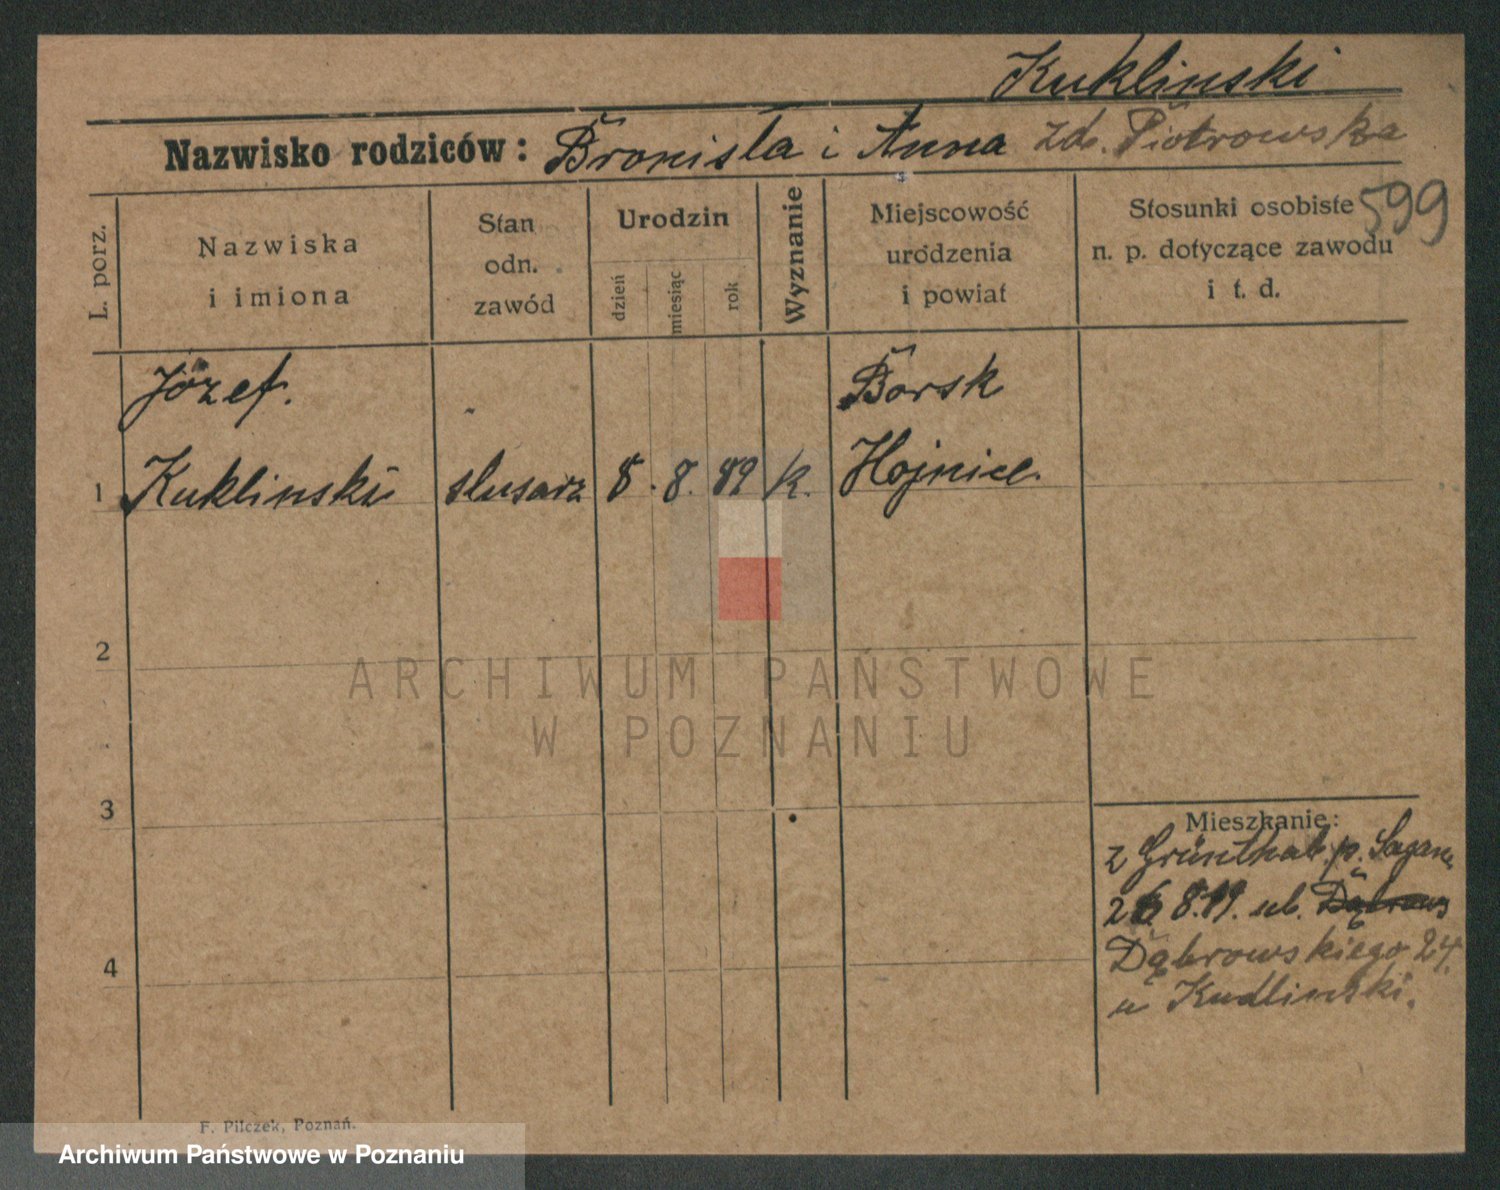 Kuklinski
Nazwisko rodziców: Bronisła i Anna zd. Piotrowska
599
L. porz.
Nazwiska i imiona
Stan odn. zawód
Urodzin
dzień
miesiąc
rok
Wyznanie
Miejscowość urodzenia i powiat
Stosunki osobiste n. p. dotyczące zawodu i t. d.
Józef. Borsk
1 Kuklinski slusarz 8. 8. 89 k. Hojnice.
2
3
4
Mieszkanie:
z Grünthal. p. Sagan
26 8.19. ul.
Dąbrowskiego 24.
u Kudlinski.
F. Pilczek, Poznań.
ARCHIWUM PAŃSTWOWE
W POZNANIU
Archiwum Państwowe w Poznaniu